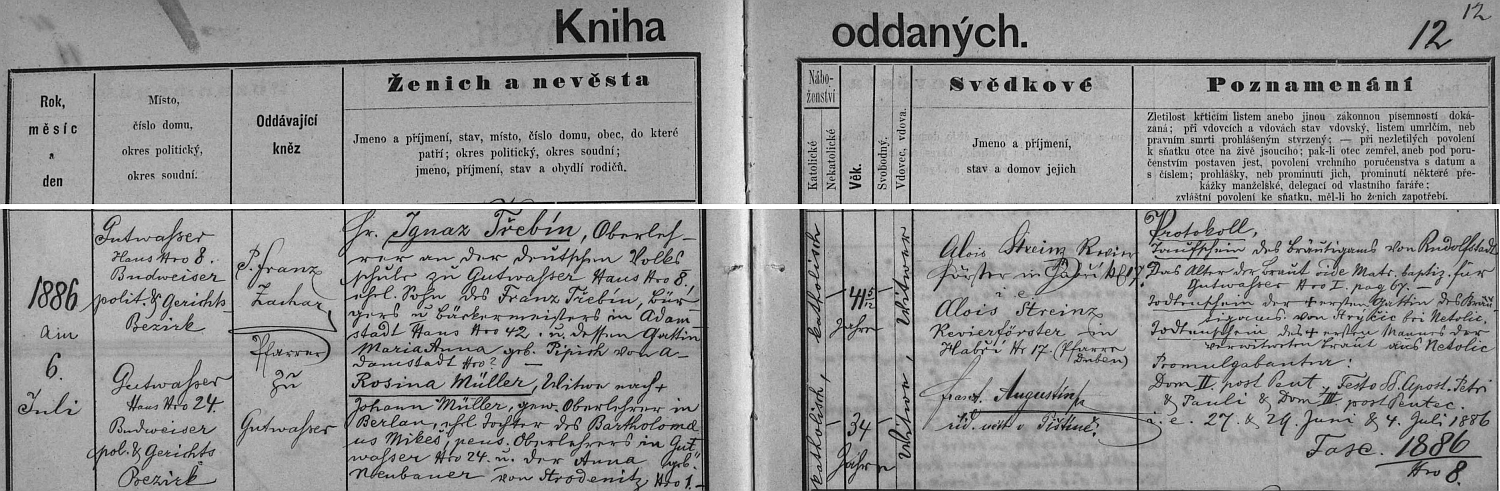 Kniha oddaných.
12
12
Rok,
měsíc
a
den
Místo,
číslo domu,
okres politický,
okres soudní.
Oddávající
kněz
Ženich a nevěsta
Jmeno a příjmení, stav, místo, číslo domu, obec, do které
patří; okres politický, okres soudní;
jmeno, příjmení, stav a obydlí rodičů.
Nábo-
ženství
Katolické
Nekatolické
Věk.
Svobodný.
Vdovec, vdova.
Svědkové
Jmeno a příjmení,
stav a domov jejich
Poznamenání
Zletilost křticím listem anebo jinou zákonnou písemností doká-
zaná; při vdovcích a vdovách stav vdovský, listem umrlčím, neb
pravním smrti prohlášeným stvrzený; — při nezletilých povolení
k sňatku otce na živě jsoucího; pak-li otec zemřel, aneb pod poru-
čenstvím postaven jest, povolení vrchního poručenstva s datum a
s číslem; prohlášky, neb prominutí jich, prominutí některé pře-
kážky manželské, delegací od vlastního faráře;
zvláštní povolení ke sňatku, měl-li ho ženich zapotřebí.
1886
am
6.
Juli
Gutwasser
Haus Nro 8.
Budweiser
polit. & Gerichts-
Bezirk
Gutwasser
Haus Nro 24.
Budweiser
pol. & Gerichts
Bezirk
P. Franz
Zachar
Pfarrer
zu
Gutwasser
Hr. Ignaz Třebín, Oberleh-
rer an der deutschen Volks
schule zu Gutwasser Haus Nro 8,
ehel. Sohn des Franz Třebín, Bür-
gers u Bäckermeisters in Adam-
stadt Haus Nro 42. u. dessen Gattin
Maria Anna geb. Pipich von A-
damstadt Nro
Rosina Müller, Witwe nach +
Johann Müller, gew. Oberlehrer in
Berlau, ehl. Tochter des Bartholomä-
us Mikeš, pens. Oberlehrers in Gut-
wasser Nro 24. u. der Anna geb.
Neubauer von Strodenitz Nro 1.-
katholisch, katholisch
41 5/12
Jahre
Witwer
katholisch
34
Jahre
Witwe,
Alois Streinz Revier
förster in Habří Nr 17.
i. e.
Alois Streinz
Revierförster in
Habří Nr 17 (Pfarre
Duben)
Frant. Augustin
říd. uč. v
Protokoll,
Taufschein des Bräutigams von Rudolfstadt
Das Alter der Braut vide Matr. baptiz. für
Gutwasser Nro I. pag 67. —
Todtenschein der + ersten Gattin des Bräu-
tigams. von Strýčic bei Netolic,
Todtenschein des + ersten Manns der
verwitweten Braut aus Netolic
Promulgabantur:
Dom II. post Pent, Festo SS. Apost. Petri
& Pauli & Dom III. post Pentec.
i. e. 27. & 29. Juni & 4. Juli 1886
Fasc. 1886
Nro 8.